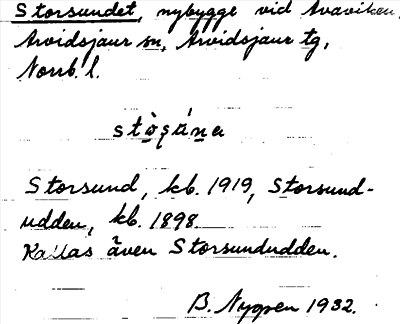 Storsundet, nybygge vid Avaviken,
Arvidsjaur sn, Arvidsjaur tg,
Norrb. l.
Storsund, kb. 1919, Storsund-
udden, kb. 1898.
Kallas även Storsundudden.
B. Nygren 1932.